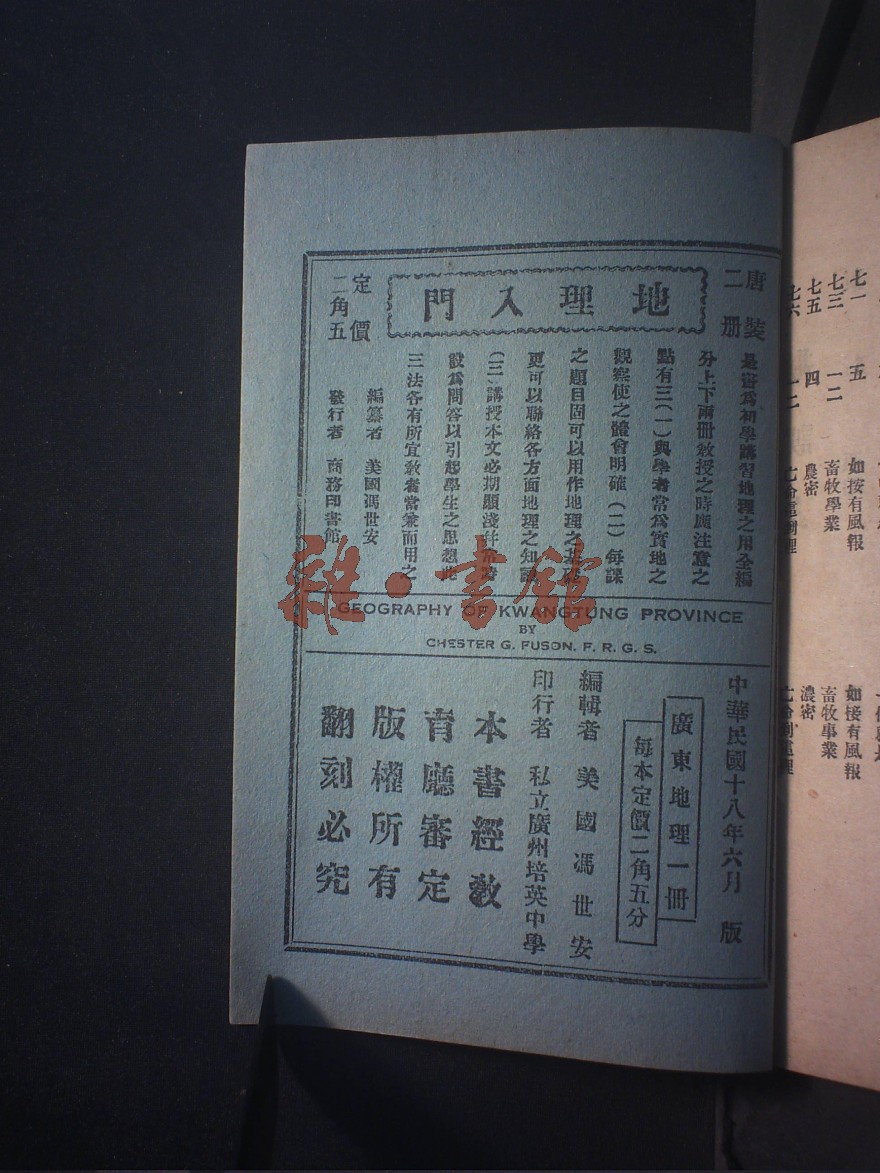 唐裝
二册
地理入門
定價
二角五
是書爲初學講習地理之用全編
分上下兩册敎授之時應注意之
點有三(一)與學者常爲實地之
觀察使之體會明確(二)每課
之題目固可以用作地理之基礎
更可以聯絡各方面地理之知識
(三)講授本文必期顯淺
設爲問答以引起學生之思想此
三法各有所宜敎者當兼而用之
編纂者 美國馮世安
發行者 商務印書館
雜·書館
GEOGRAPHY OF KWANGTUNG PROVINCE
BY
CHESTER G. FUSON, F. R. G. S.
中華民國十八年六月 版
廣東地理一冊
每本定價二角五分
編輯者 美國馮世安
印行者 私立廣州培英中學
本書經敎
育廳審定
版權所有
翻刻必究
七一 五 如按有風報 如接有風報
七三 一二 畜牧學業 畜牧事業
七五 四 農密 濃密
七六 一二